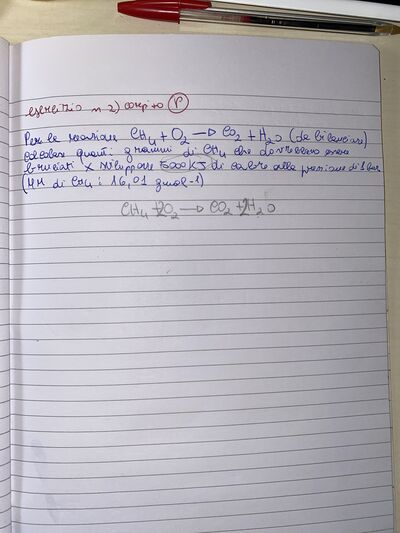 esercizio n 2) compito
Per la reazione CH4 + O2 → CO2 + H2O (da bilanciare)
calcolare quanti grammi di CH4 che dovrebbero essere
bruciati x sviluppare di calore alla pressione di 1 bar
(MM di CH4: 16,01 gmol-1)
CH4 + 2O2 → CO2 + 2H2O